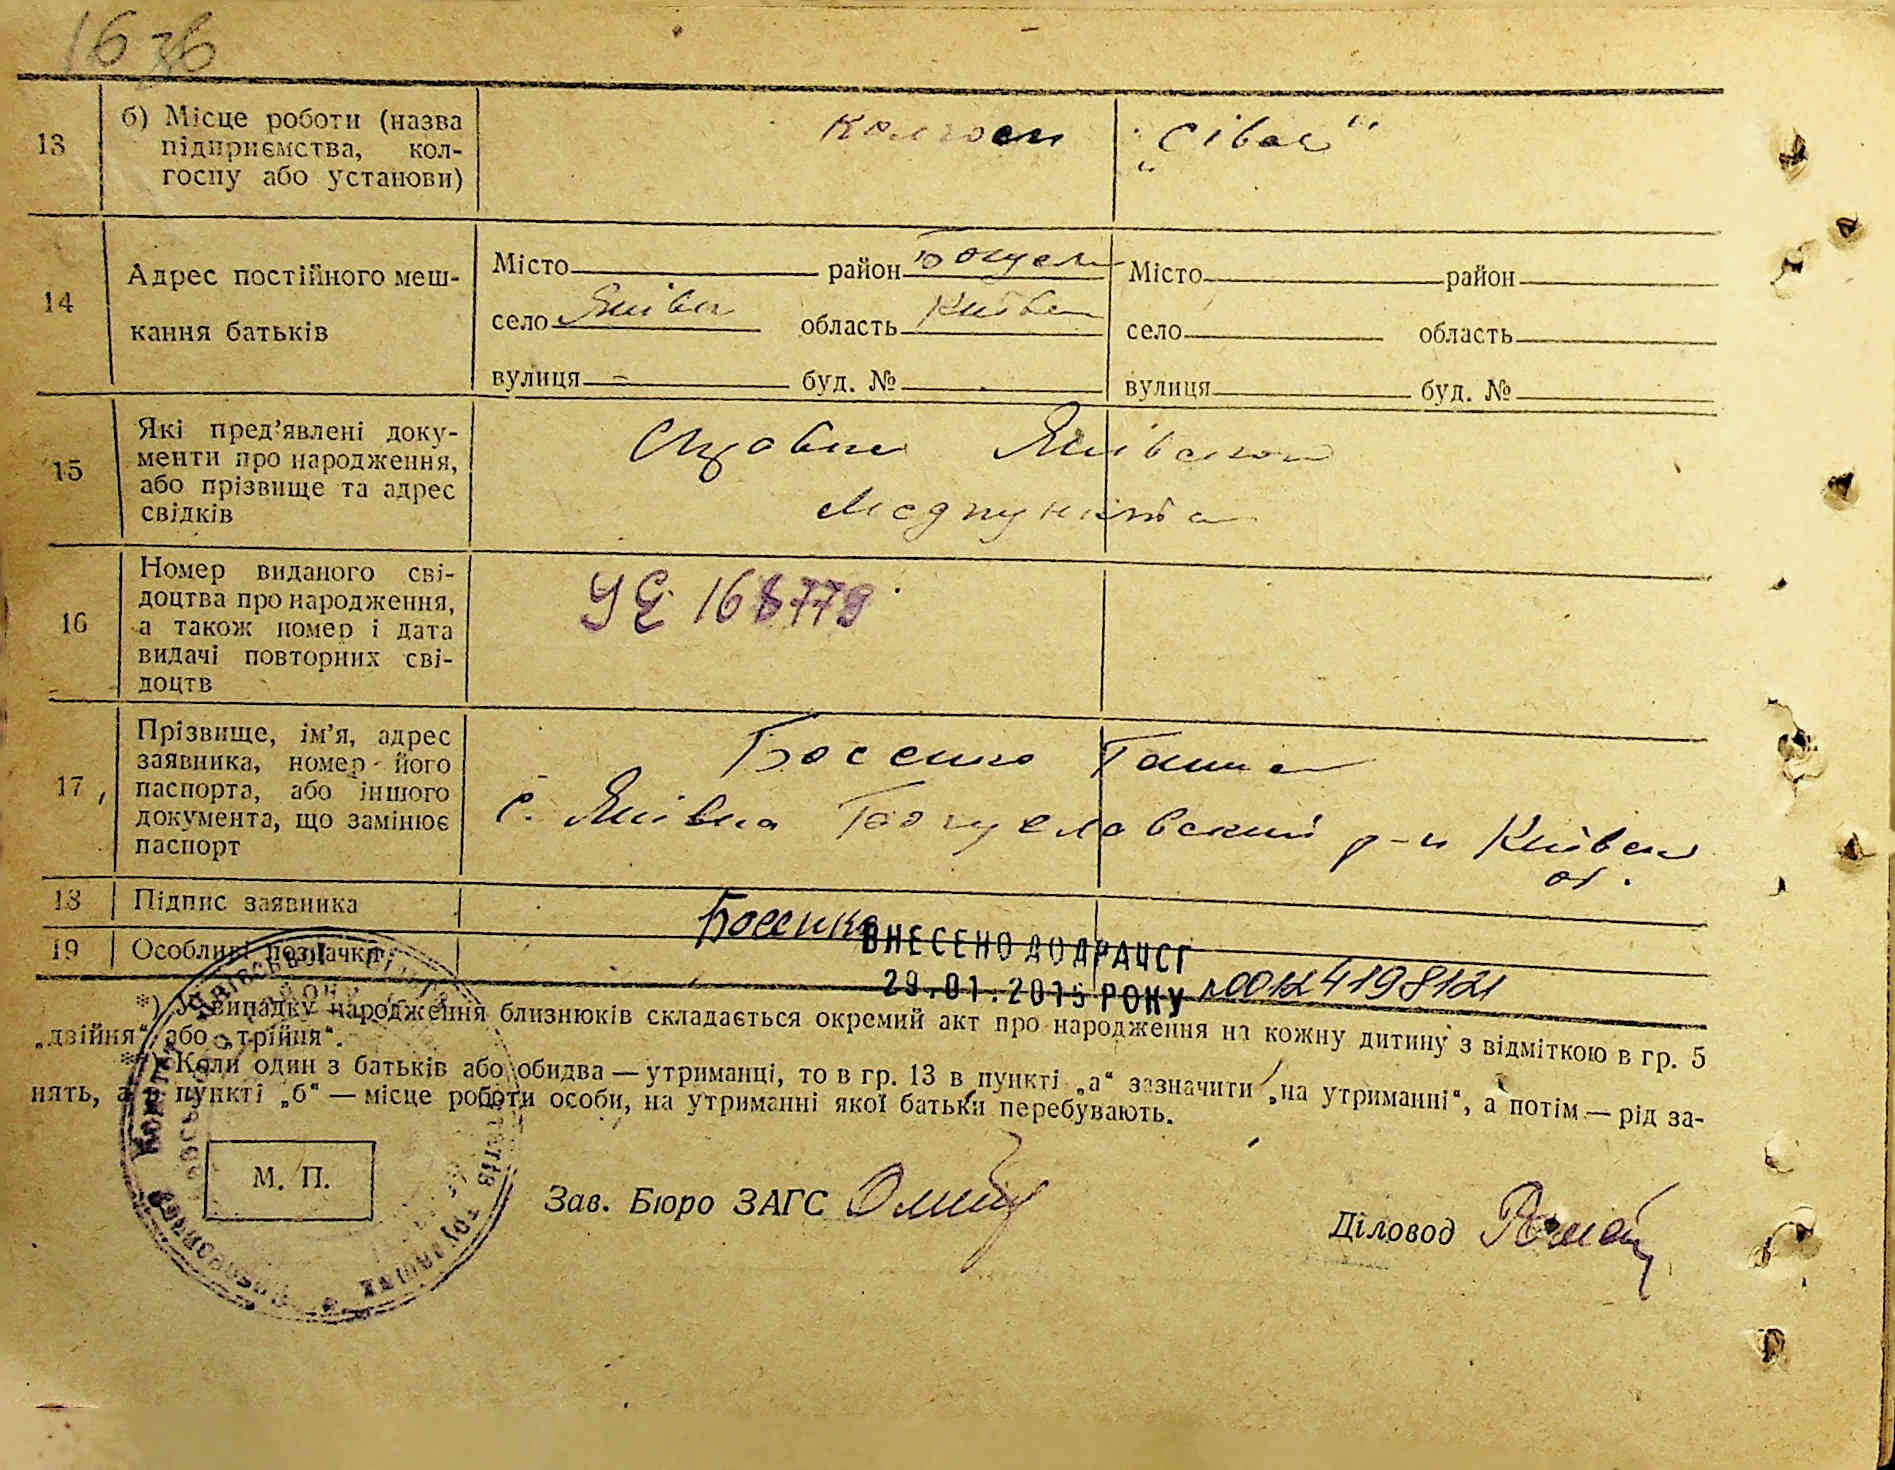 16 зв
13 б) Місце роботи (назва
підприємства, кол-
госпу або установи)
колгосп „Сівач“
14 Адрес постійного меш-
кання батьків
Місто район Богусл Місто район
село Яхівка область Київськ село область
вулиця – буд. № вулиця буд. №
15 Які пред’явлені доку-
менти про народження,
або прізвище та адрес
свідків
Медпункта
16 Номер виданого сві-
доцтва про народження,
а також номер і дата
видачі повторних сві-
доцтв
УЄ 168779
17 Прізвище, ім’я, адрес
заявника, номер його
паспорта, або іншого
документа, що замінює
паспорт
Босенко Ганна
с. Богуславский р-н Київськ
об.
18 Підпис заявника
Босенко
19 Особливі позначки
ВНЕСЕНО ДО ДРАЦСГ
29.01.2015 РОКУ №00124198121
*) У випадку народження близнюків складається окремий акт про народження на кожну дитину з відміткою в гр. 5
„двійня“ або „трійня“.
**) Коли один з батьків або обидва — утриманці, то в гр. 13 в пункті „а“ зазначити „на утриманні“, а потім — рід за-
нять, а в пункті „б“ — місце роботи особи, на утриманні якої батьки перебувають.
М. П.
Зав. Бюро ЗАГС
Діловод